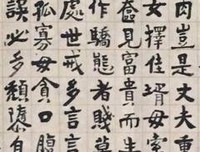 肉豈是丈夫重
女擇佳壻毋索
奩見富貴而生
作驕態者賤莫
處世戒多言言
孤寡毋貪口腹
誤必多頹隳自